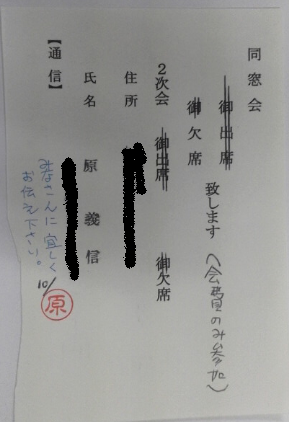 同窓会
御出席
御欠席
致します（会費のみ参加）
2次会 御出席 御欠席
住所
氏名 原義信
【通信】
みなさんに宜しく
お伝え下さい。
10/
原